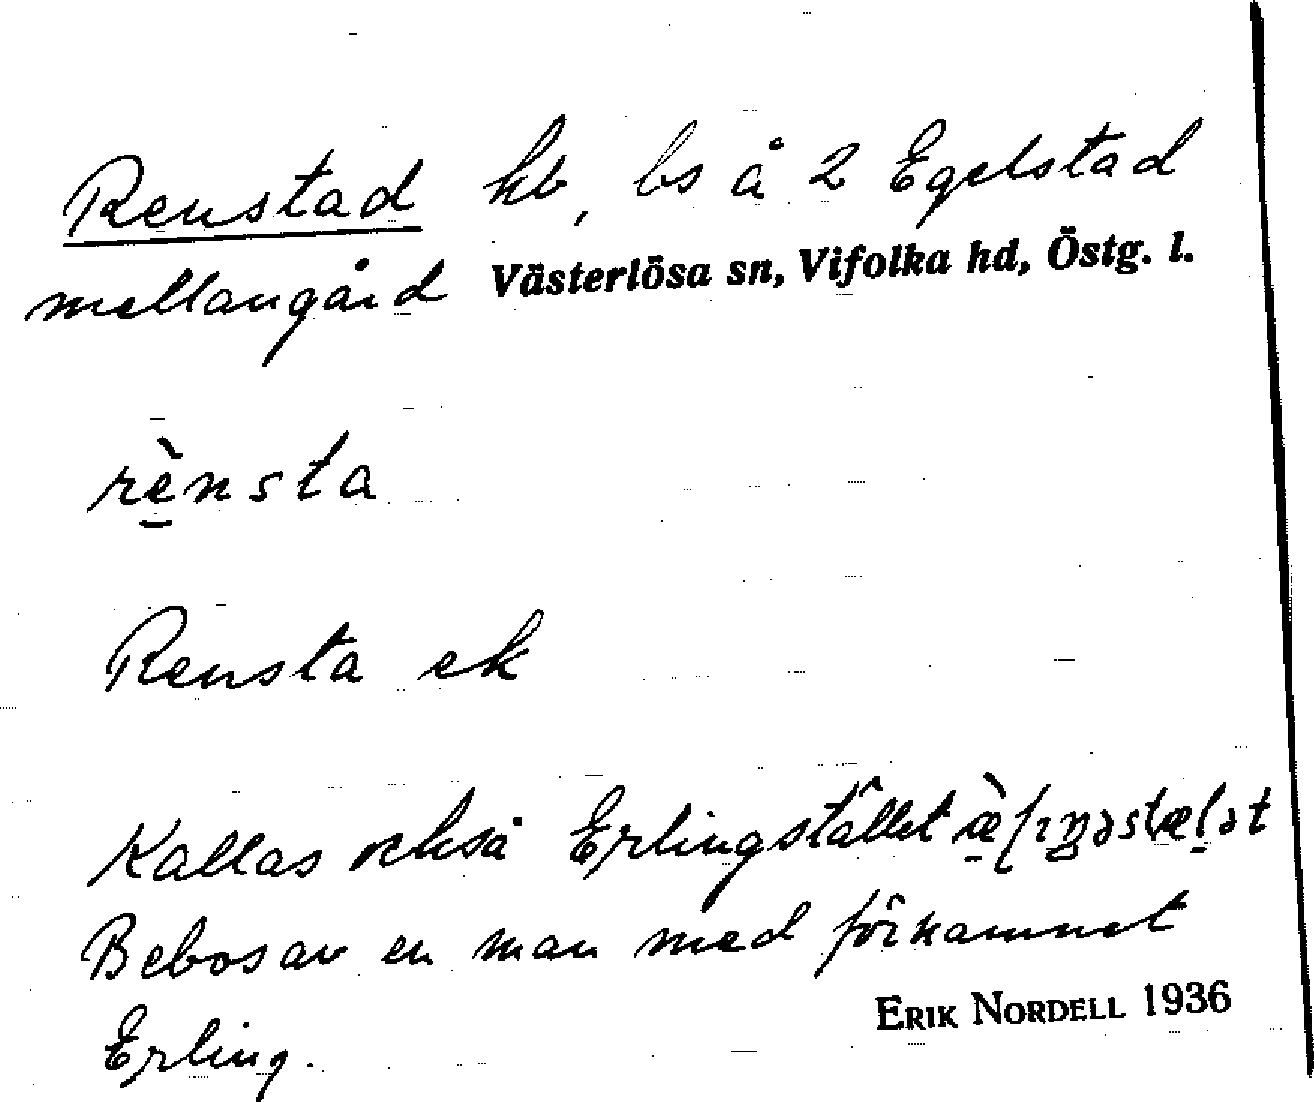 Renstad hb, bs å 2 Egelstad
mellangård Västerlösa sn, Vifolka hd, Östg. l.
rè̱nsta
Rensta ek
Kallas också Erlingstället
Bebos av en man med förnamnet
Erling.
ERIK NORDELL 1936